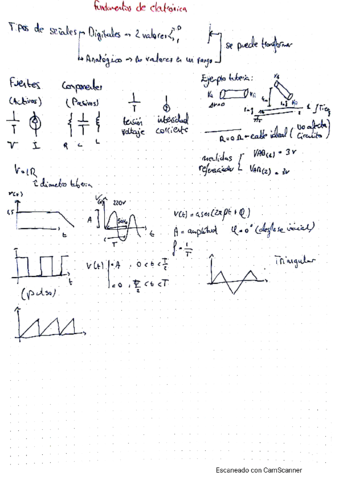 Fundamentos de eletrónica
Tipos de señales
Digitales → 2 valores
0
1
Analógico → ∞ valores en un rango
se puede transformar
Fuentes
(Activos)
Componentes
(Pasivos)
V
I
R
C
L
tensión
voltaje
intensidad
corriente
Ejemplo tubería:
R=0 Ω → cable ideal (No afecta
circuito)
medidas
referenciadas
= 3V
V=IR
diámetro tubería
V(t)
1,5
t
220V
A
t
T
V(t) = A sen(2πft + φ)
A = amplitud
φ = 0º (desfase inicial)
f = 1/T
(pulso)
t
V(t)
= A, 0 < t < T/2
= 0, T/2 < t < T
Triangular
Escaneado con CamScanner